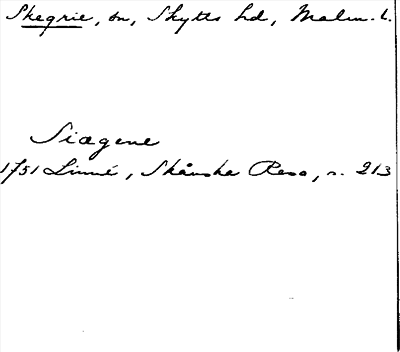 Skegrie, sn, Skytts hd, Malm. l.
Siagene
1751 Linné, Skånska Resa, s. 213